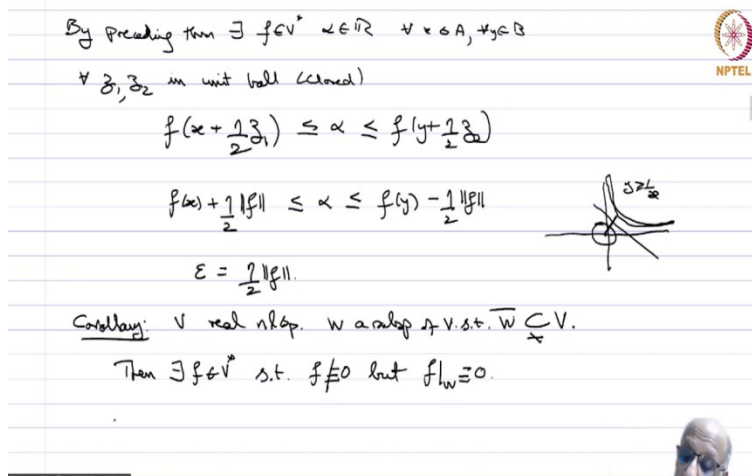 By preceding thm ∃ f∈V* α∈ℝ ∀ x∈A, ∀y∈B
NPTEL
∀ z₁, z₂ in unit ball (closed)
f(x + 1/2 z₁) ≤ α ≤ f(y + 1/2 z₂)
f(x) + 1/2 ‖f‖ ≤ α ≤ f(y) - 1/2 ‖f‖
y ≥ 1/x
ε = 1/2 ‖f‖.
Corollary: V real nlsp. W a subsp of V. s.t. W̅ ⊊ V.
Then ∃ f∈V* s.t. f≢0 but f|_W ≡ 0.